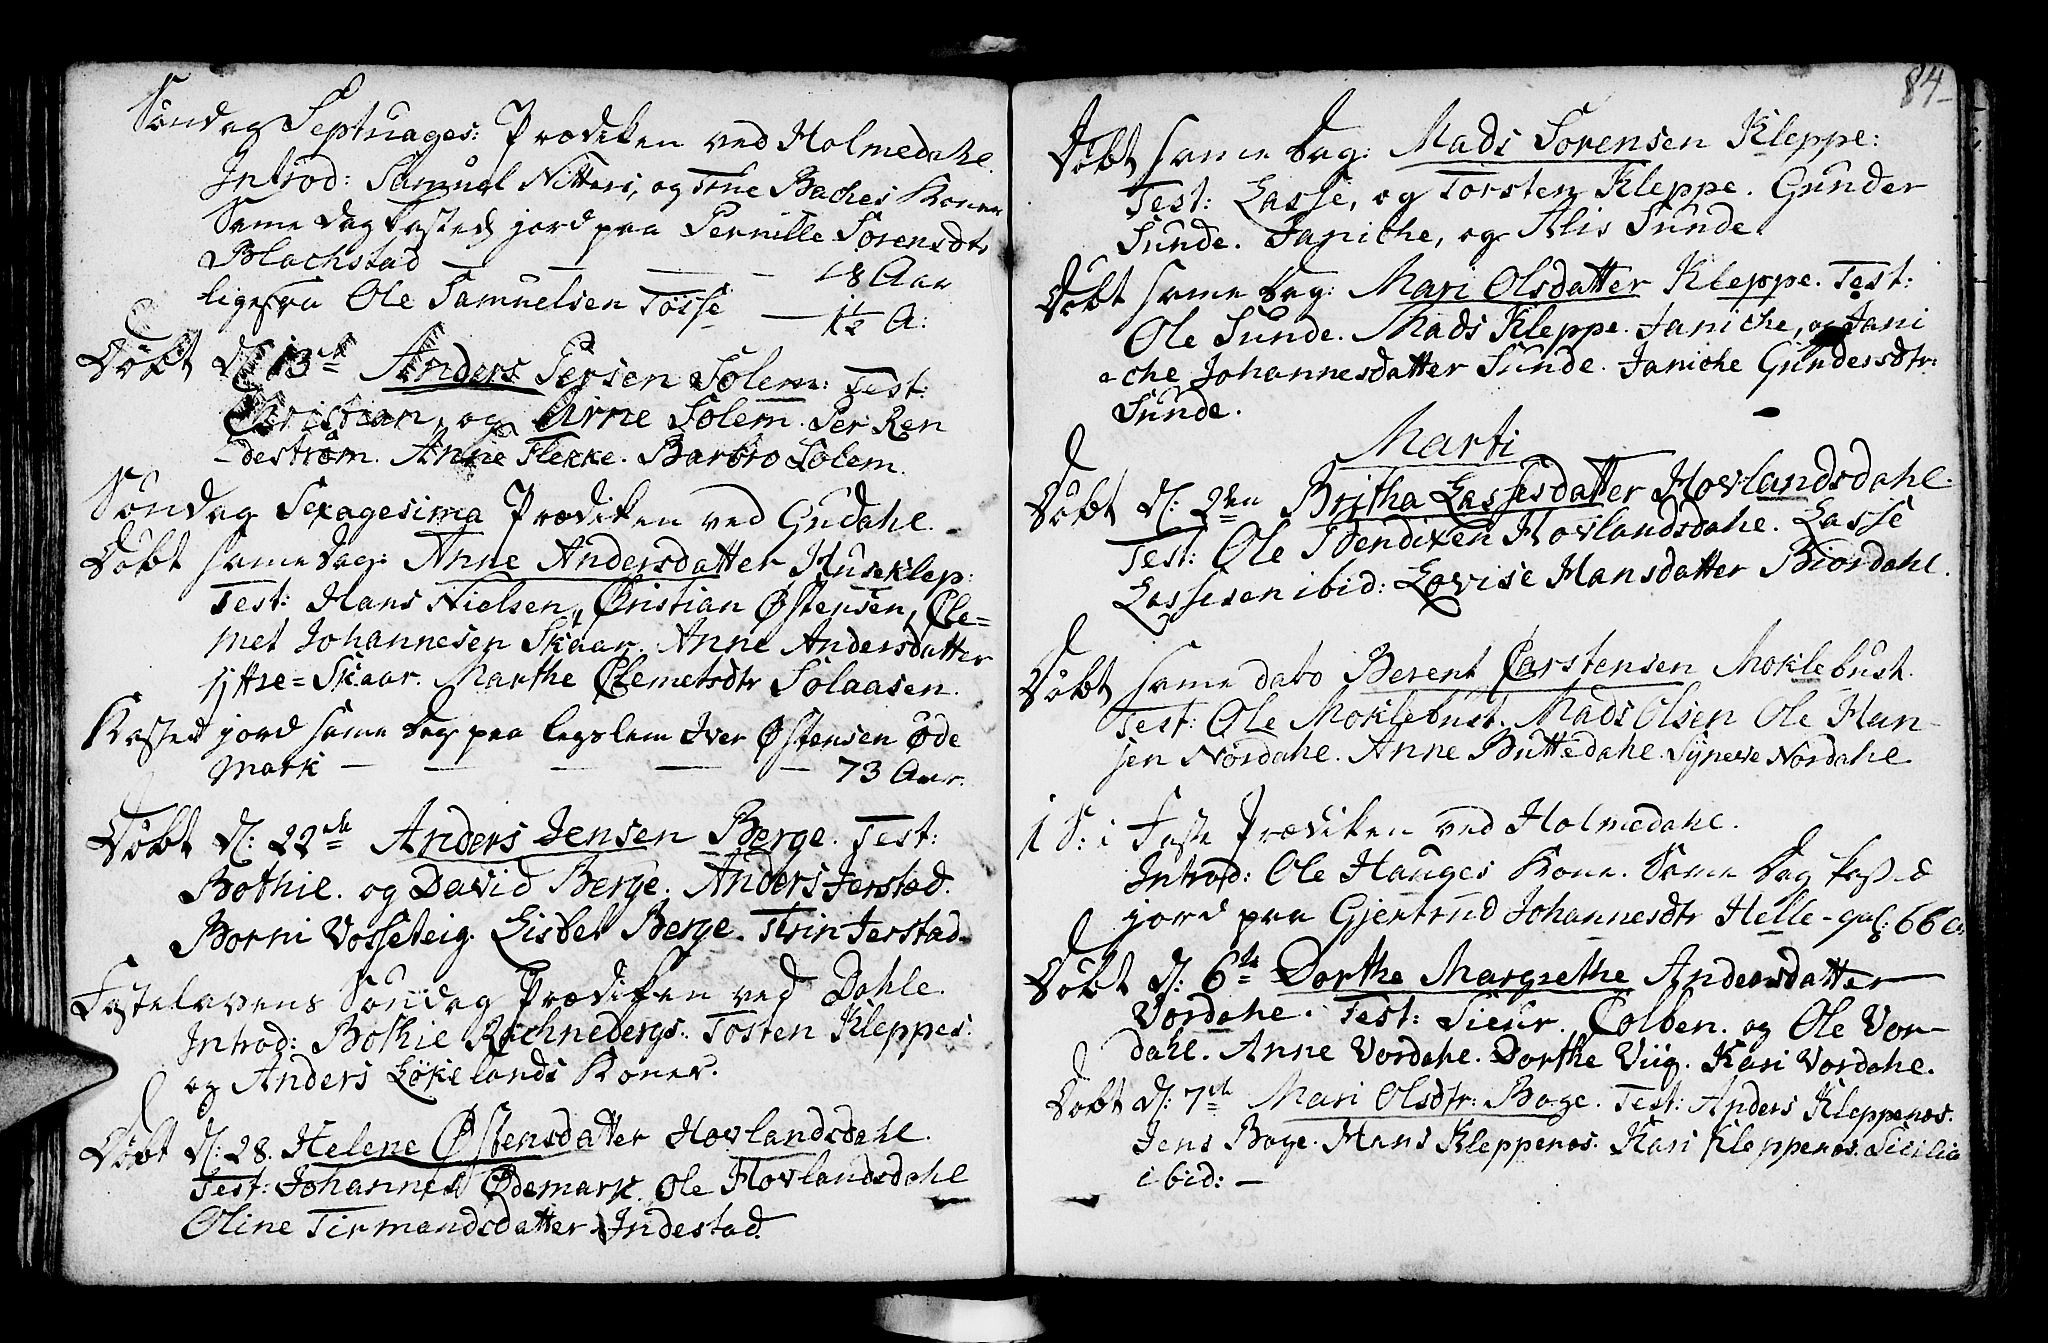 Søndag Septuages: Prædiken ved Holmedahl.
Introd: Samuel Nitters, og Trne Baches Koner
Same dag kasted jord paa Pernille Sørensdtr
Blachstad — — — 48 Aar
ligesaa Ole Samuelsen Tøsse — 1½ A:
Døbt d: 13de Anders Persen Solem: Test:
Christian, og Arne Solem. Per Ren
-destrøm. Anne Flekke. Barbro Solem.
Søndag Sexagesima Prædiken ved Gudahl.
Døbt same dag: Anne Andersdatter Huseklep:
Test: Hans Nielsen, Christian Østensen, Cle=
met Johannesen Skaar. Anne Andersdatter
yttre=Skaar. Marthe Clemetsdtr Solaasen.
Kasted jord same dag paa legslem Iver Østensen Øde
mark — — — — — 73 Aar.
Døbt d: 22de Anders Jensen Berge. Test:
Bothie. og David Berge. Anders Jerstad.
Borni Vosseteig. Lisbet Berge. Thrin Jerstad.
Fastelavens Søndag Prædiken ved Dahle.
Introd: Bothie Rachnebergs. Tosten Kleppes.
og Anders Løkelands Koner.
Døbt d: 28. Helene Østensdatter Hovlandsdahl.
Test: Johannes Ødemark. Ole Hovlandsdahl
Oline Tirmandsdatter Indestad.
84
Døbt same dag: Mads Sørensen Kleppe:
Test: Lasse, og Torsten Kleppe. Gunder
Sunde. Janiche, og Alis Sunde.
Døbt same dag: Mari Olsdatter Kleppe. Test:
Ole Sunde. Mads Kleppe. Janiche, og Jani
-che Johannesdatter Sunde. Janiche Gundersdtr:
Sunde.
Marti
Døbt d: 2den Britha Lassesdatter Hovlandsdahl.
Test: Ole Bendixen Hovlandsdahl. Lasse
Lassesen ibid: Lovise Hansdatter Biordahl.
Døbt same dato Berent Carstensen Moklebust.
Test: Ole Moklebust. Mads Olsen Ole Han-
sen Nordahl. Anne Buttedahl. Syneve Nordahl
1 S: i Faste Prædiken ved Holmedahl.
Introd: Ole Hauges Kone. Same dag kasted
jord paa Gjertrud Johannesdtr Helle - gal: 66 a:
Døbt d: 6te Dorthe Margrethe Andersdatter
Vordahl. Test: Sieur. Colben. og Ole Vor-
dahl. Anne Vordahl. Dorthe Viig. Kari Vordahl.
Døbt d: 7de Mari Olsdtr: Boge. Test: Anders Kleppenes.
Jens Boge. Hans Kleppenes. Kari Kleppenes. Sicilia
ibid: —